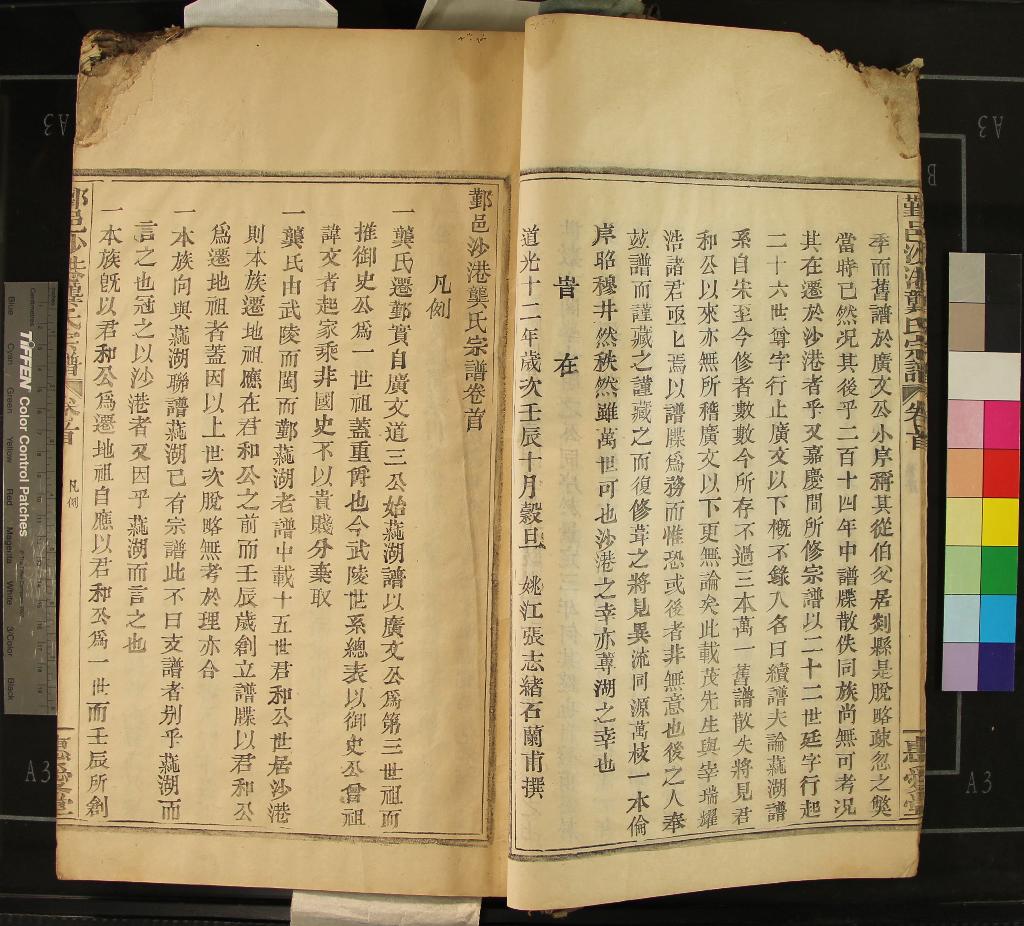 季而舊譜於廣文公小序稱其從伯父居剡縣是脫略疎忽之獘
當時已然況其後乎二百十四年中譜牒散佚同族尚無可考况
其在遷於沙港者乎又嘉慶間所修宗譜以二十二世廷字行起
二十六世尊字行止廣文以下槪不錄入名曰續譜夫論蕪湖譜
系自宋至今修者數數今所存不過三本萬一舊譜散失將見君
和公以來亦無所稽廣文以下更無論矣此載茂先生與宰瑞耀
浩諸君亟亟焉以譜牒爲務而惟恐或後者非無意也後之人奉
玆譜而謹藏之謹藏之而復修葺之將見異流同源萬枝一本倫
序昭穆井然秩然雖萬世可也沙港之幸亦蓴湖之幸也
旹在
道光十二年歲次壬辰十月穀旦 姚江張志緒石蘭甫撰
鄞邑沙港龔氏宗譜卷首
凡例
一龔氏遷鄞實自廣文道三公始蕪湖譜以廣文公爲第三世祖而
推御史公爲一世祖蓋重爵也今武陵世系總表以御史公曾祖
諱文者起家乘非國史不以貴賤分棄取
一龔氏由武陵而閩而鄞蕪湖老譜中載十五世君和公世居沙港
則本族遷地祖應在君和公之前而壬辰歲創立譜牒以君和公
爲遷地祖者蓋因以上世次脫略無考於理亦合
一本族向與蕪湖聯譜蕪湖已有宗譜此不曰支譜者别乎蕪湖而
言之也冠之以沙港者又因乎蕪湖而言之也
一本族旣以君和公爲遷地祖自應以君和公爲一世而壬辰所創
鄞邑沙港龔氏宗譜
卷首
凡例
惠愛堂
TIFFEN Color Control Patches
Blue
Cyan
Green
Yellow
Red
Magenta
White
3/Color
Black
A3
A3
A3
A3
B